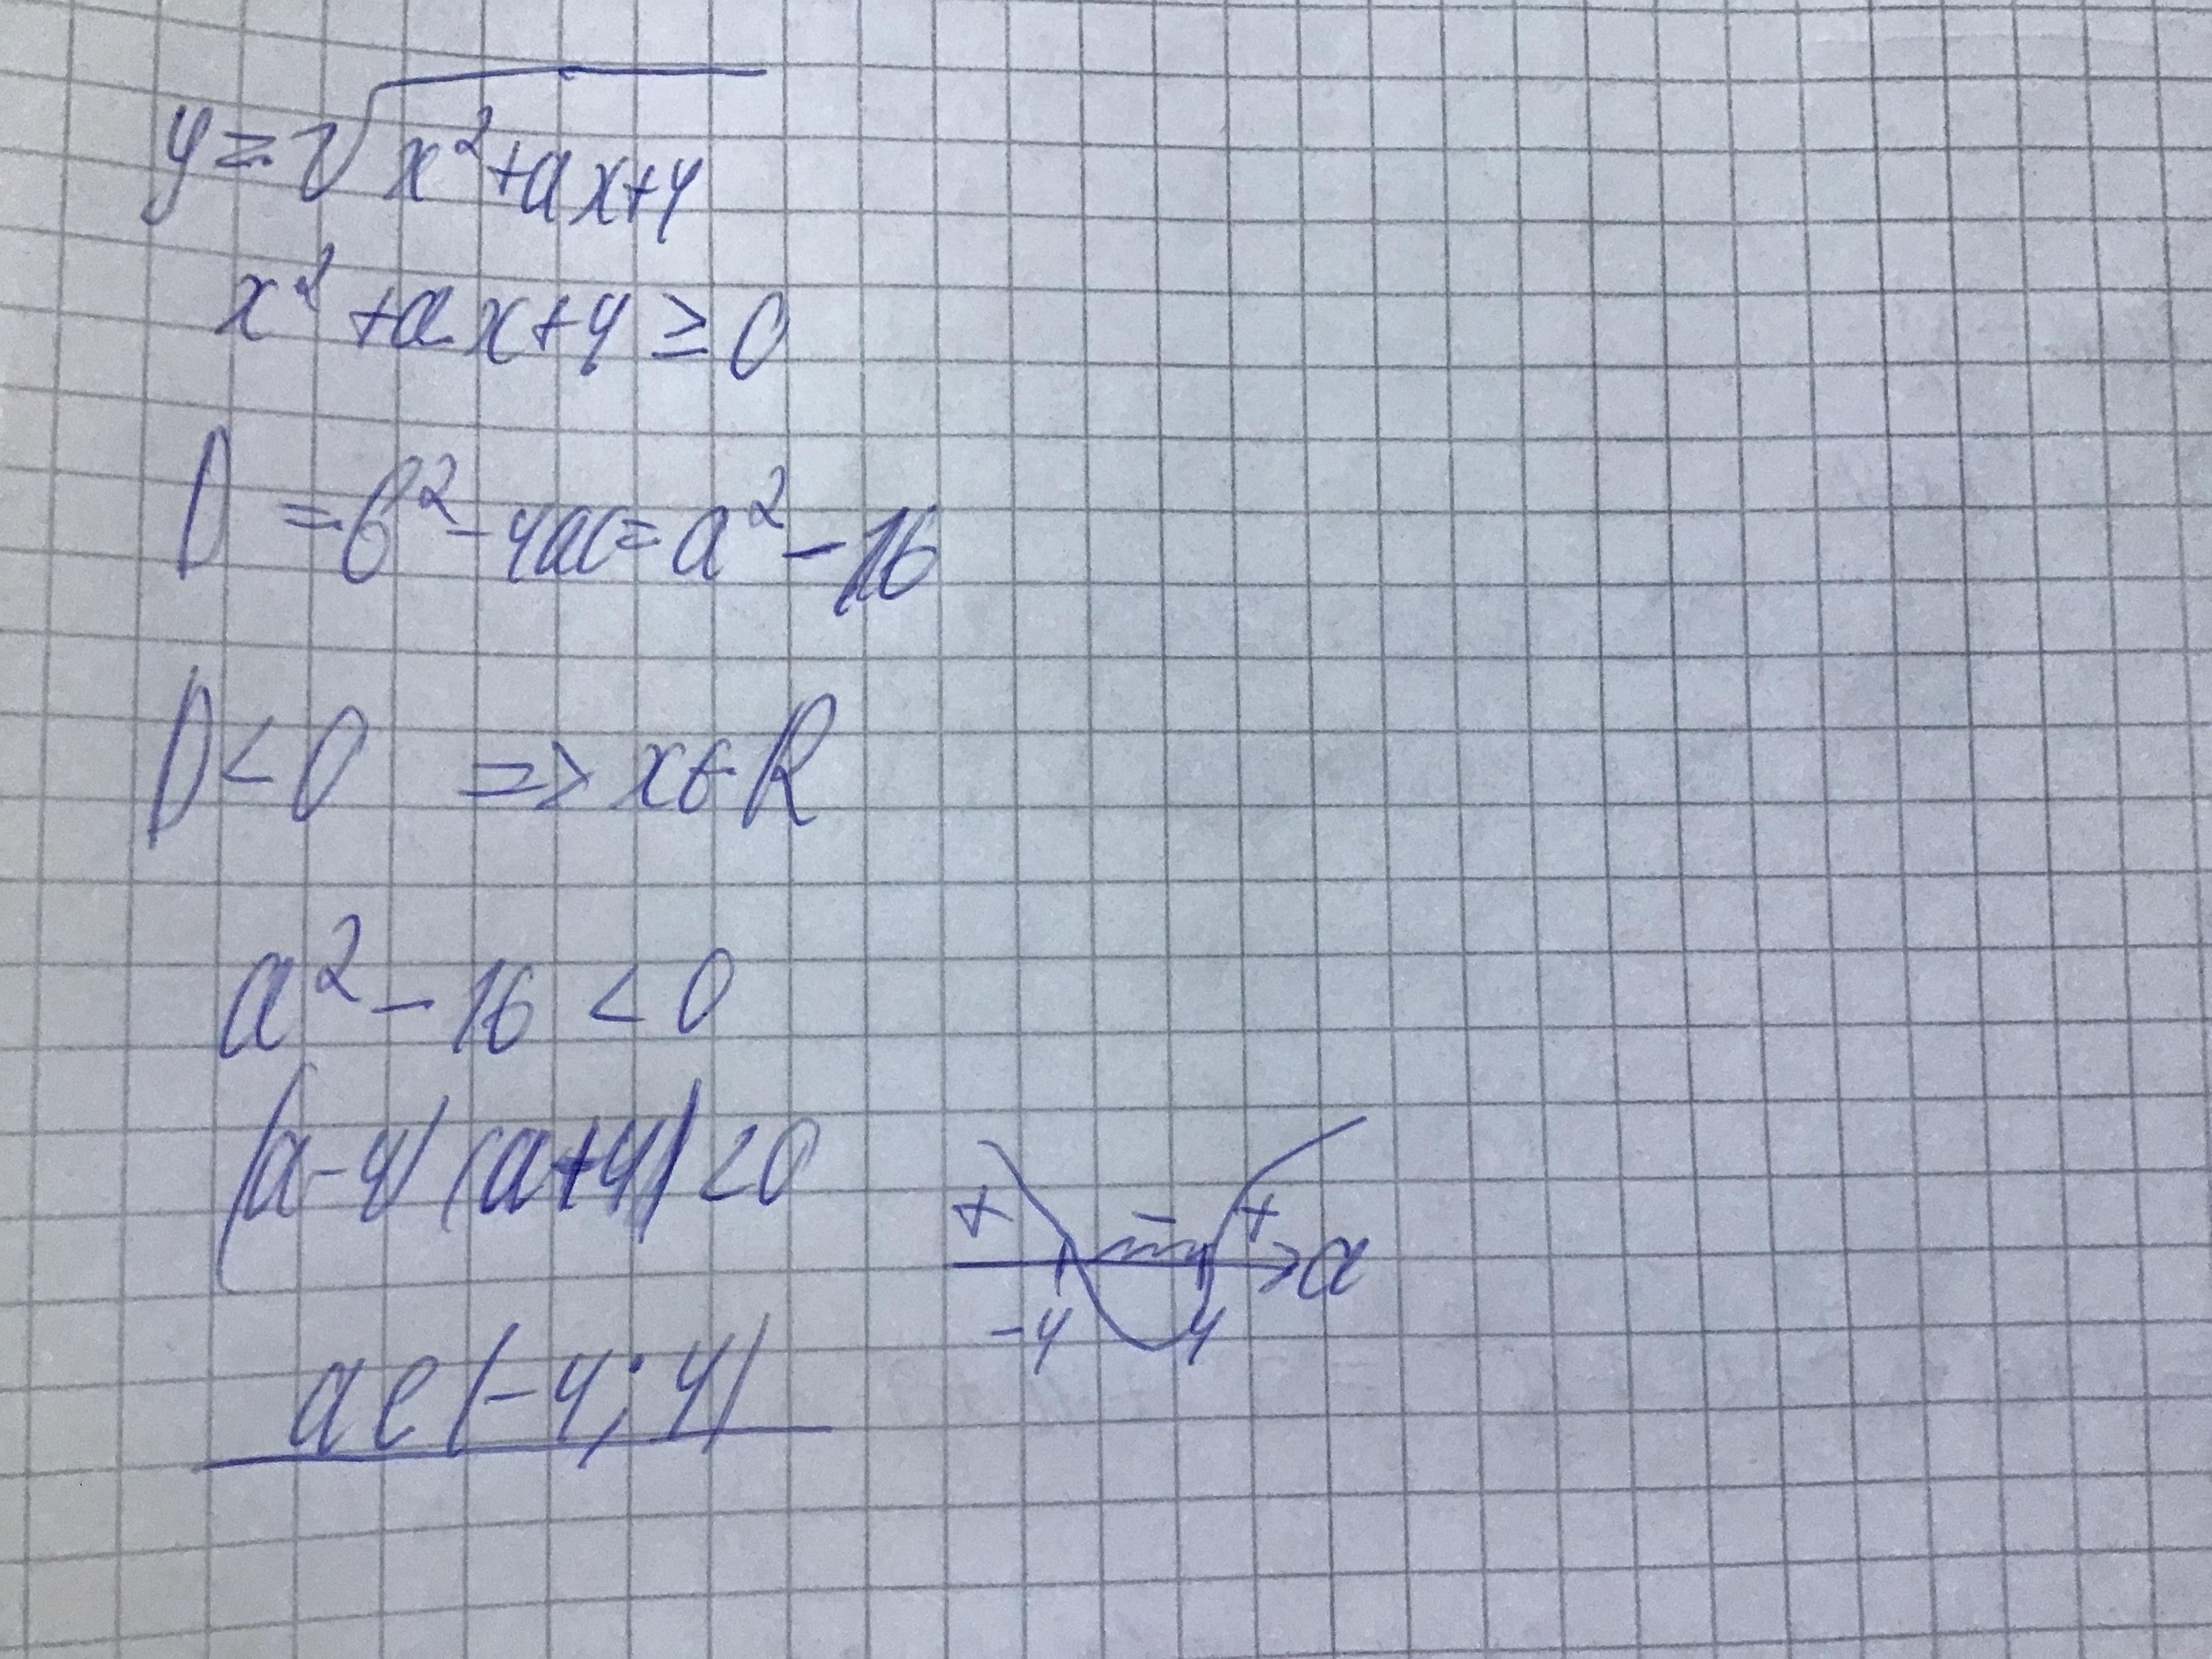 y = √x² + ax + 4
x² + ax + 4 ≥ 0
D = b² - 4ac = a² - 16
D < 0 => x ∈ R
a² - 16 < 0
(a - 4)(a + 4) < 0
+ - + a
-4 4
a ∈ (-4; 4)